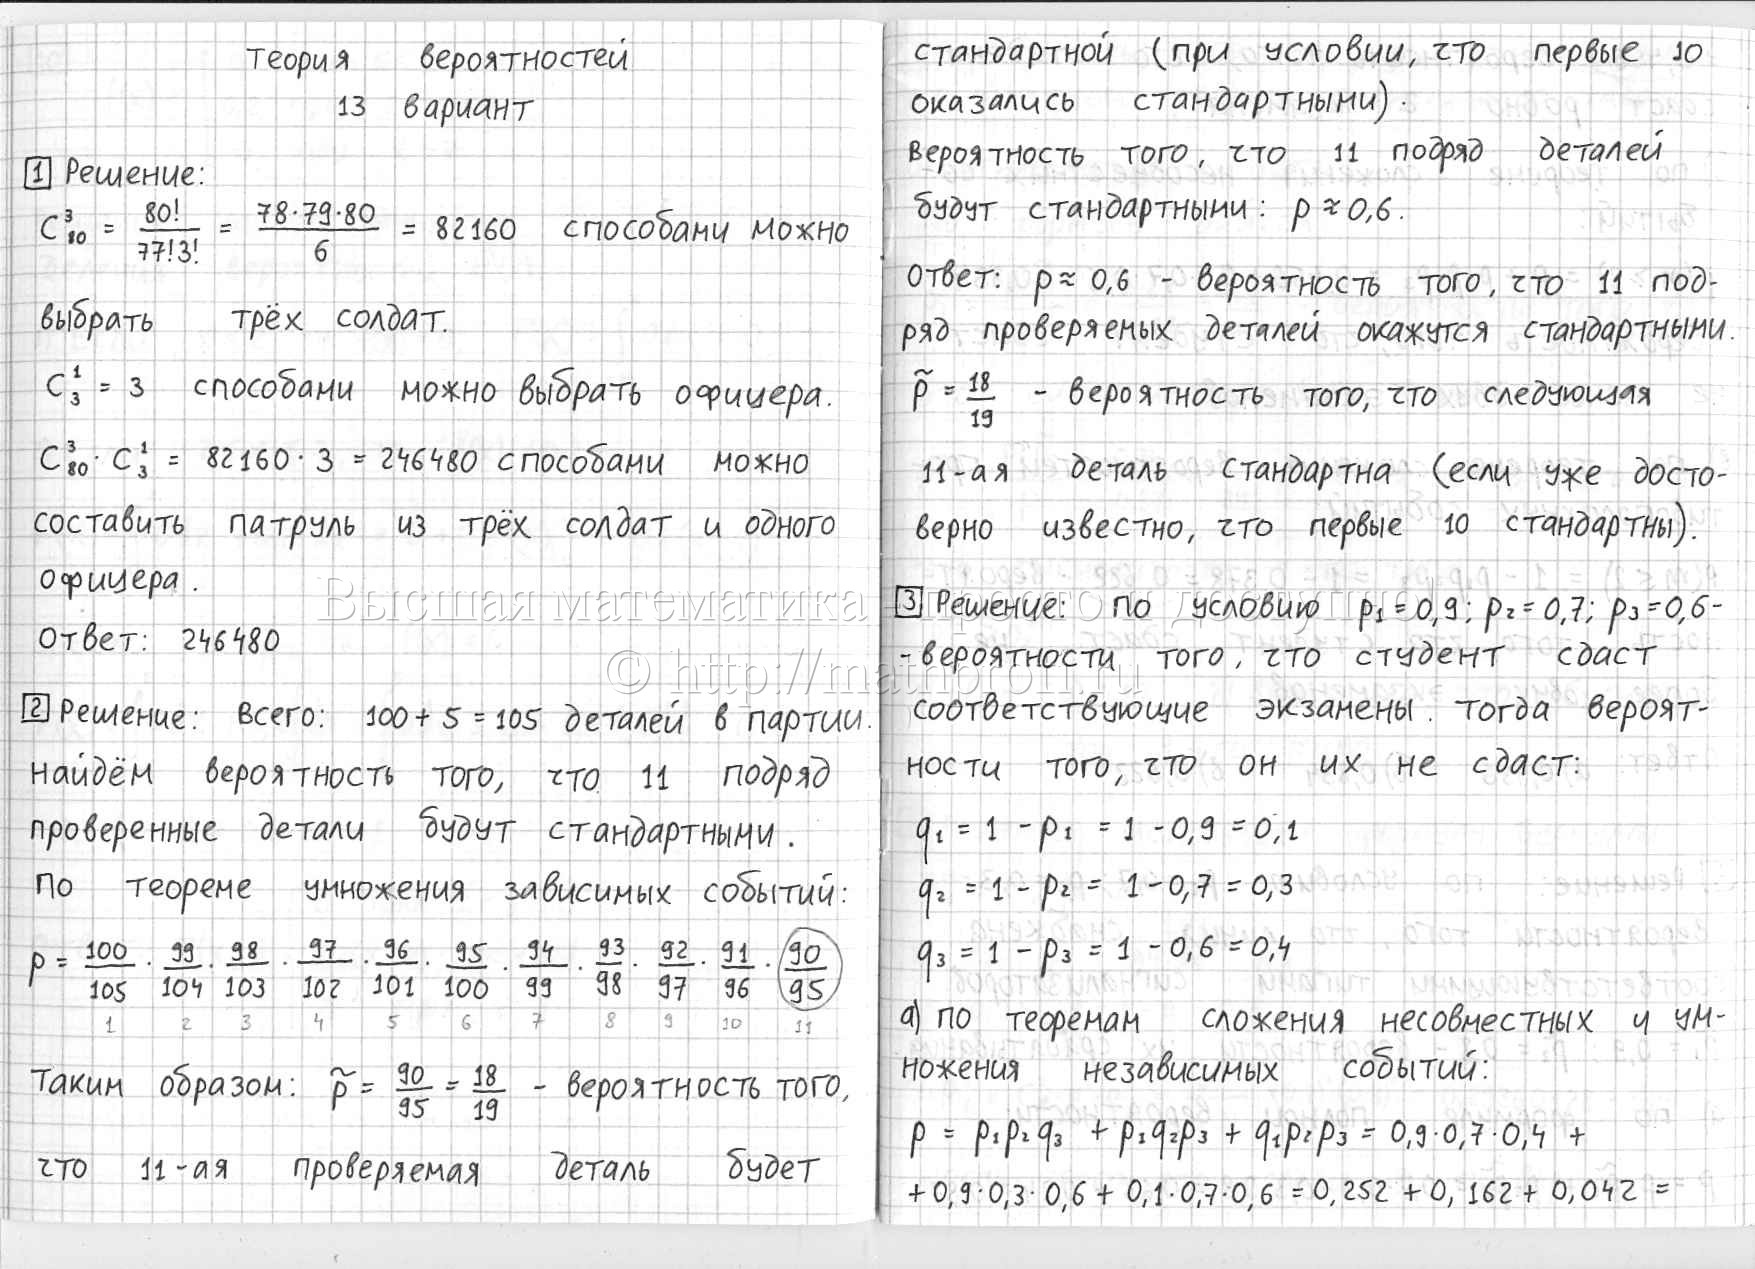 Теория вероятностей
13 вариант
1 Решение:
C³₈₀ = 80!/77!3! = 78·79·80/6 = 82160 способами можно
выбрать трёх солдат.
C¹₃ = 3 способами можно выбрать офицера.
C³₈₀ · C¹₃ = 82160 · 3 = 246480 способами можно
составить патруль из трёх солдат и одного
офицера.
Ответ: 246480
2 Решение: Всего: 100 + 5 = 105 деталей в партии.
Найдём вероятность того, что 11 подряд
проверенные детали будут стандартными.
По теореме умножения зависимых событий:
p = 100/105 · 99/104 · 98/103 · 97/102 · 96/101 · 95/100 · 94/99 · 93/98 · 92/97 · 91/96 · 90/95
1 2 3 4 5 6 7 8 9 10 11
Таким образом: p̃ = 90/95 = 18/19 - вероятность того,
что 11-ая проверяемая деталь будет
стандартной (при условии, что первые 10
оказались стандартными).
Вероятность того, что 11 подряд деталей
будут стандартными: p ≈ 0,6.
Ответ: p ≈ 0,6 - вероятность того, что 11 под-
ряд проверяемых деталей окажутся стандартными.
p̃ = 18/19 - вероятность того, что следующая
11-ая деталь стандартна (если уже досто-
верно известно, что первые 10 стандартны).
3 Решение: По условию p₁ = 0,9; p₂ = 0,7; p₃ = 0,6 -
- вероятности того, что студент сдаст
соответствующие экзамены. Тогда вероят-
ности того, что он их не сдаст:
q₁ = 1 - p₁ = 1 - 0,9 = 0,1
q₂ = 1 - p₂ = 1 - 0,7 = 0,3
q₃ = 1 - p₃ = 1 - 0,6 = 0,4
а) По теоремам сложения несовместных и ум-
ножения независимых событий:
p = p₁p₂q₃ + p₁q₂p₃ + q₁p₂p₃ = 0,9·0,7·0,4 +
+ 0,9·0,3·0,6 + 0,1·0,7·0,6 = 0,252 + 0,162 + 0,042 =
Высшая математика – просто и доступно!
© http://mathprofi.ru